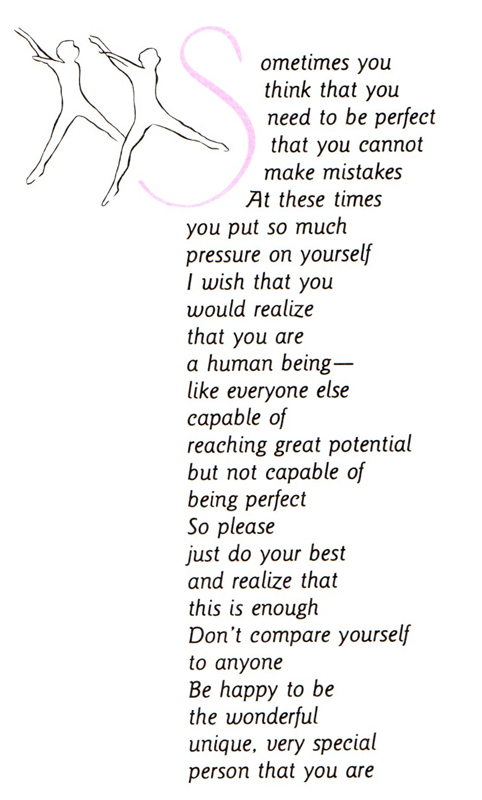 Sometimes you
think that you
need to be perfect
that you cannot
make mistakes
At these times
you put so much
pressure on yourself
I wish that you
would realize
that you are
a human being—
like everyone else
capable of
reaching great potential
but not capable of
being perfect
So please
just do your best
and realize that
this is enough
Don't compare yourself
to anyone
Be happy to be
the wonderful
unique, very special
person that you are